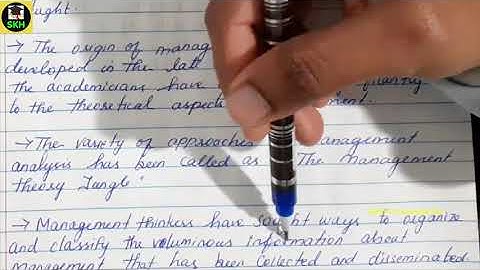 SKH
ught.
→ The origin of manag
developed in the lat
the academicians have quantity
to the theoretical aspect ment.
→ The variety of approaches management
analysis has been called as "The management
theory Jungle"
→ Management thinkers have sought ways to organize
and classify the voluminous information about
management that has been collected and disseminated